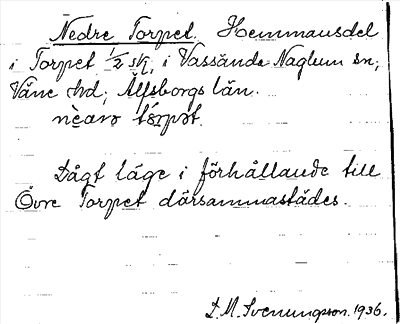 Nedre Torpet. Hemmansdel
i Torpet 1/2 skf, i Vassända Naglum sn;
Väne hd; Älfsborgs län.
torpət.
Lågt läge i förhållande till
Övre Torpet därsammastädes.
D. M. Svenungson. 1936.